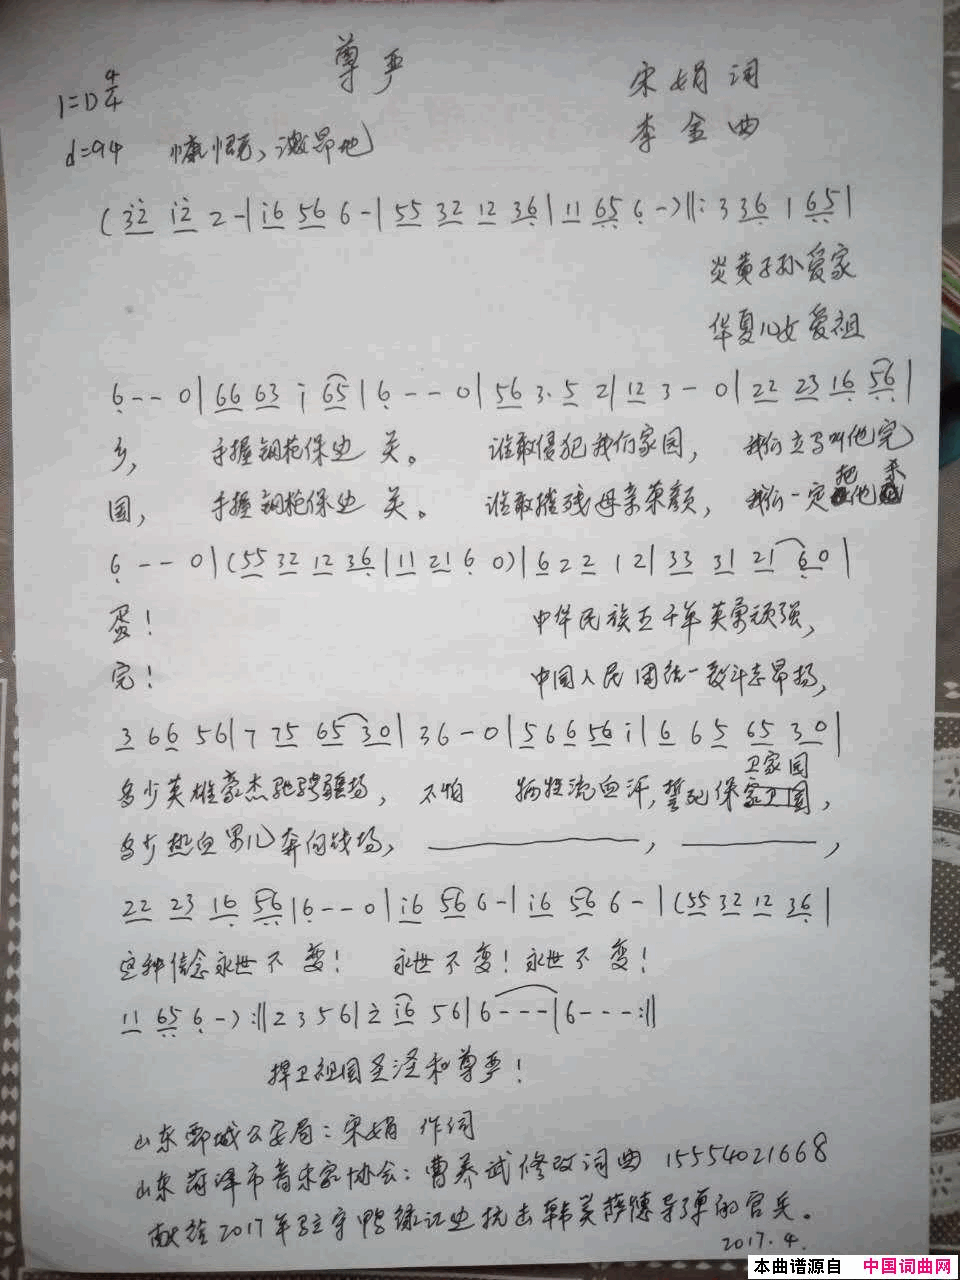 尊严
1=D 4/4
宋娟 词
♩=94 慷慨、激昂地
李金 曲
(3̇2̇ i2̇ 2-|i6 56 6-|55 32 12 36|11 65 6-)‖: 3 36 1 65|
炎黄子孙爱家
华夏儿女爱祖
6--0|66 63 i 65|6--0|56 3·5 2|12 3-0|22 23 16 56|
乡, 手握钢枪保边关。 谁敢侵犯我们家园, 我们立马叫他完
国, 手握钢枪保边关。 谁敢摧残母亲荣颜, 我们一定把他
6--0|(55 32 12 36|11 21 6 0)|6 2 2 1 2|33 31 21 60|
蛋! 中华民族五千年英勇顽强,
完! 中国人民团结一致斗志昂扬,
3 6 6 56|7 75 65 30|36-0|5 6 6 56 i|6 6 5 65 30|
卫家园
多少英雄豪杰驰骋疆场, 不怕 牺牲流血汗, 誓死保家卫国,
多少热血男儿奔向战场, ——, ——,
22 23 16 56|6--0|i6 56 6-|i6 56 6-|(55 32 12 36|
这种信念永世不变! 永世不变! 永世不变!
11 65 6-):‖2 3 5 6|2̇ i6 56|6---|6---:‖
捍卫祖国圣洁和尊严!
山东鄄城公安局:宋娟 作词
山东菏泽市音乐家协会:曹养武修改词曲 15554021668
献给2017年驻守鸭绿江边抗击韩美萨德导弹的官兵。
2017.4.
本曲谱源自 中国词曲网